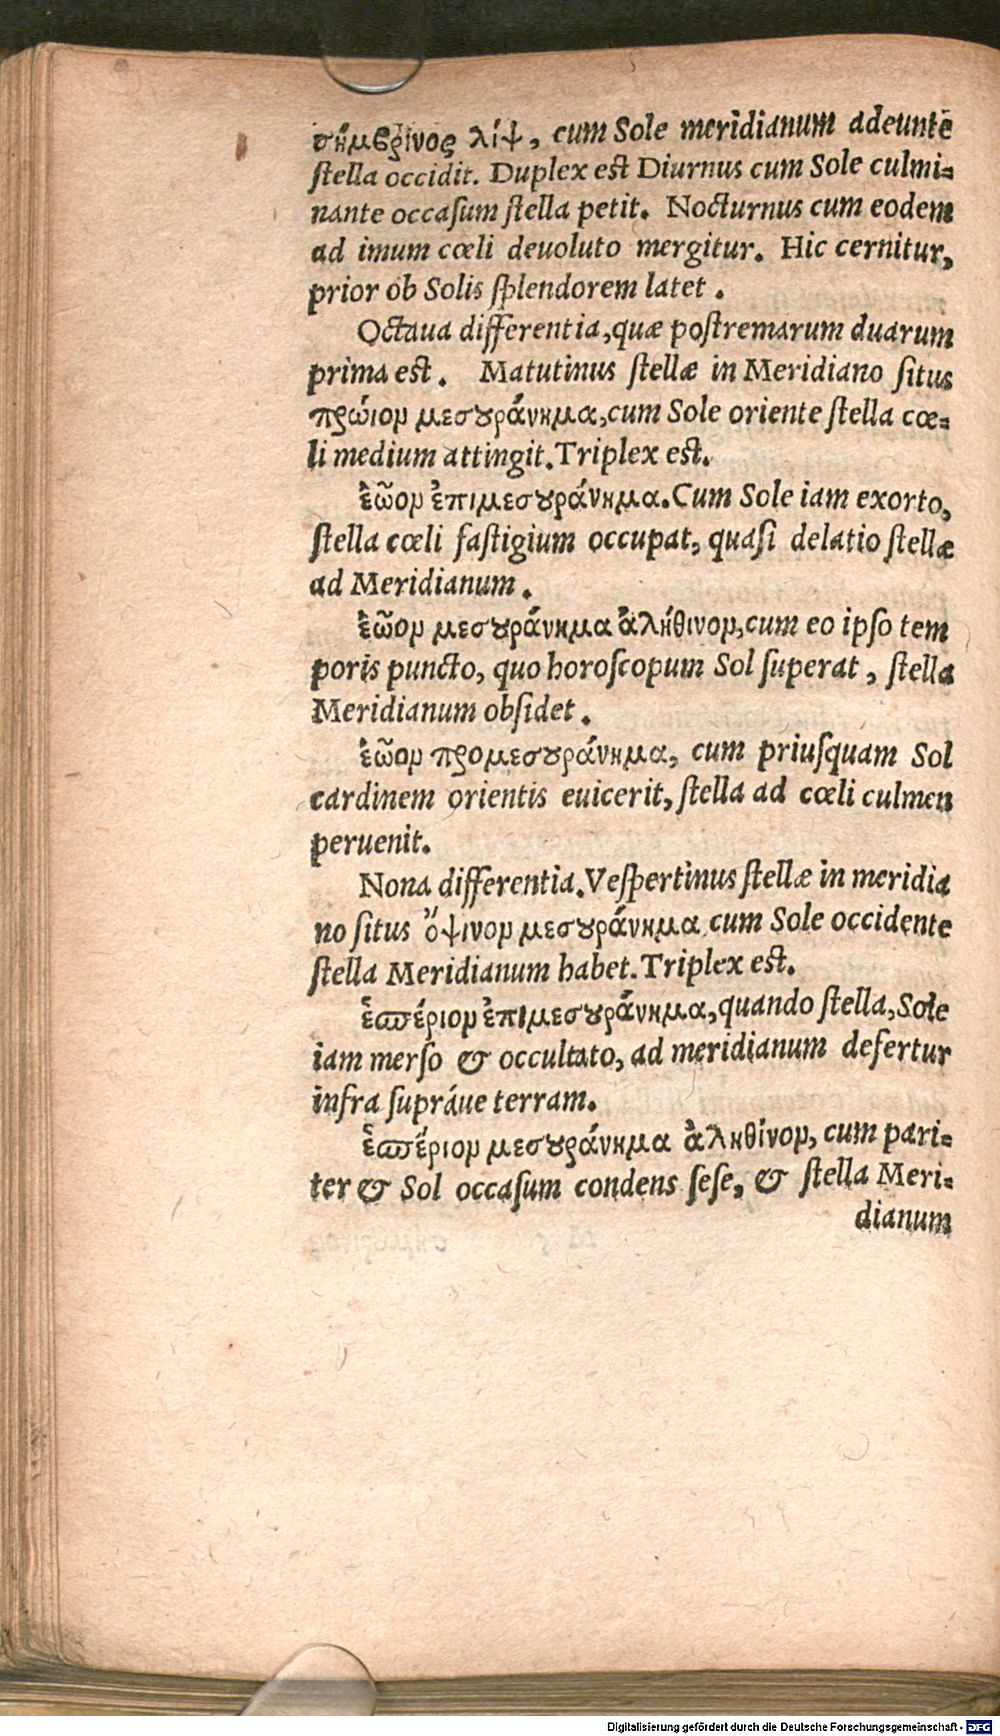 σήμερινος λίψ, cum Sole meridianum adeunte
stella occidit. Duplex est Diurnus cum Sole culmi=
nante occasum stella petit. Nocturnus cum eodem
ad imum cœli deuoluto mergitur. Hic cernitur,
prior ob Solis splendorem latet.
Octaua differentia, quæ postremarum duarum
prima est. Matutinus stellæ in Meridiano situs
πρώιον μεσουράνημα, cum Sole oriente stella cœ=
li medium attingit. Triplex est.
ἑῶον ἐπιμεσουράνημα. Cum Sole iam exorto,
stella cœli fastigium occupat, quasi delatio stellæ
ad Meridianum.
ἑῶον μεσουράνημα ἀλήθινον, cum eo ipso tem
poris puncto, quo horoscopum Sol superat, stella
Meridianum obsidet.
ἑῶον προμεσουράνημα, cum priusquam Sol
cardinem orientis euicerit, stella ad cœli culmen
peruenit.
Nona differentia. Vespertinus stellæ in meridia
no situs ὄψινον μεσουράνημα cum Sole occidente
stella Meridianum habet. Triplex est.
ἑσπέριον ἐπιμεσουράνημα, quando stella, Sole
iam merso & occultato, ad meridianum defertur
infra supráue terram.
ἑσπέριον μεσουράνημα ἀληθίνον, cum pari=
ter & Sol occasum condens sese, & stella Meri=
dianum
Digitalisierung gefördert durch die Deutsche Forschungsgemeinschaft - DFG